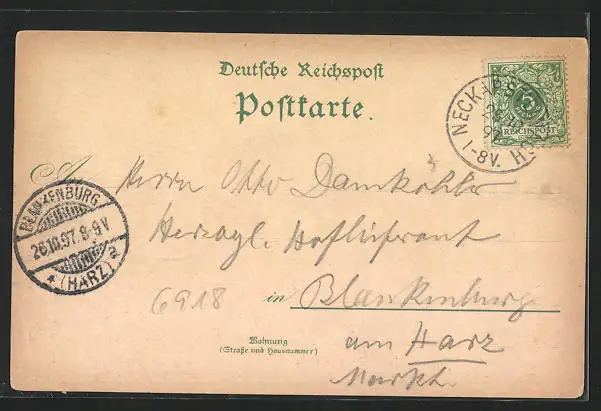 Deutsche Reichspost
Postkarte.
NECKAR
1-8V.
5
REICHSPOST
An Herrn Otto Damköhler
BLANKENBURG
26.10.97.8-9V
* (HARZ) a
Herzogl. Hoflieferant
6918
in Blankenburg
Wohnung
(Straße und Hausnummer)
am Harz
Markt.